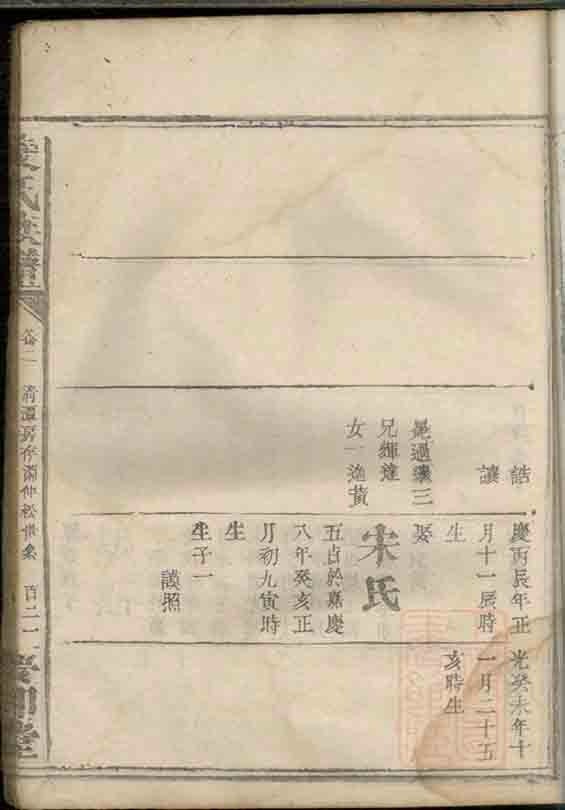 誥
讓
晃過繼三
兄輝達
女一適黃
慶丙辰年正
月十一辰時
生
娶
宋氏
五貞於嘉慶
八年癸亥正
月初九寅時
生
生子一
謨照
光癸未年十
一月二十五
亥時生
氏族譜
卷二
清潭房存
仲松世系
百二一
堂